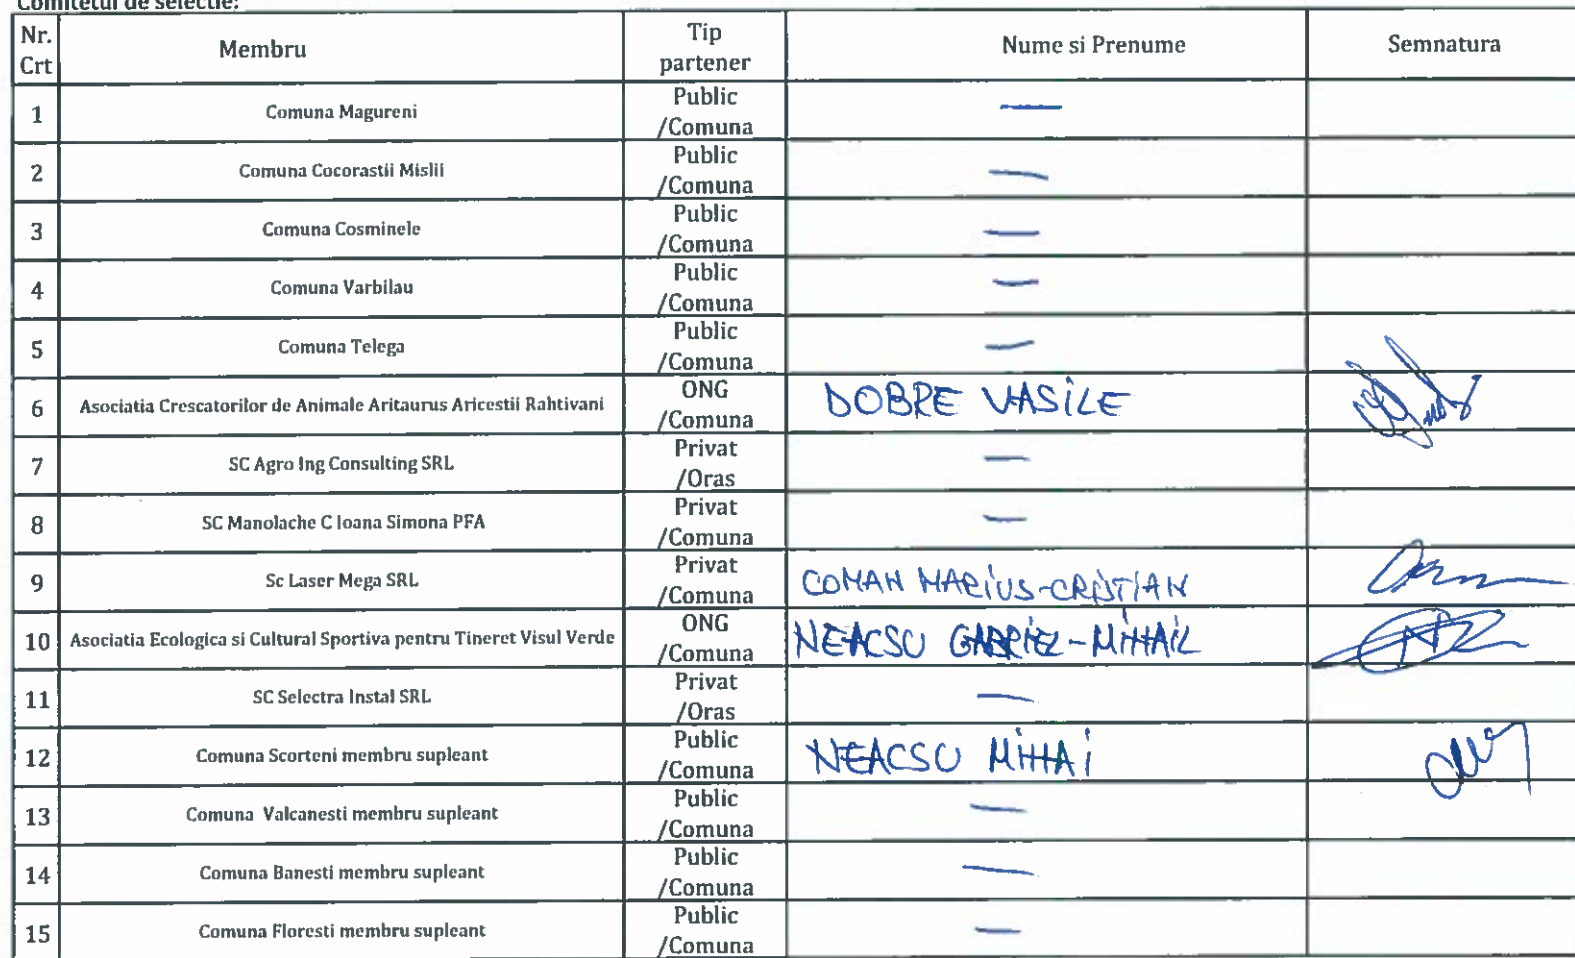 Comitetul de selectie:
Nr. Crt Membru Tip partener Nume si Prenume Semnatura
1 Comuna Magureni Public /Comuna —
2 Comuna Cocorastii Mislii Public /Comuna —
3 Comuna Cosminele Public /Comuna —
4 Comuna Varbilau Public /Comuna —
5 Comuna Telega Public /Comuna —
6 Asociatia Crescatorilor de Animale Aritaurus Aricestii Rahtivani ONG /Comuna DOBRE VASILE
7 SC Agro Ing Consulting SRL Privat /Oras —
8 SC Manolache C Ioana Simona PFA Privat /Comuna —
9 Sc Laser Mega SRL Privat /Comuna COMAN MARIUS-CRISTIAN
10 Asociatia Ecologica si Cultural Sportiva pentru Tineret Visul Verde ONG /Comuna NEACSU GABRIEL-MIHAIL
11 SC Selectra Instal SRL Privat /Oras —
12 Comuna Scorteni membru supleant Public /Comuna NEACSU MIHAI
13 Comuna Valcanesti membru supleant Public /Comuna —
14 Comuna Banesti membru supleant Public /Comuna —
15 Comuna Floresti membru supleant Public /Comuna —